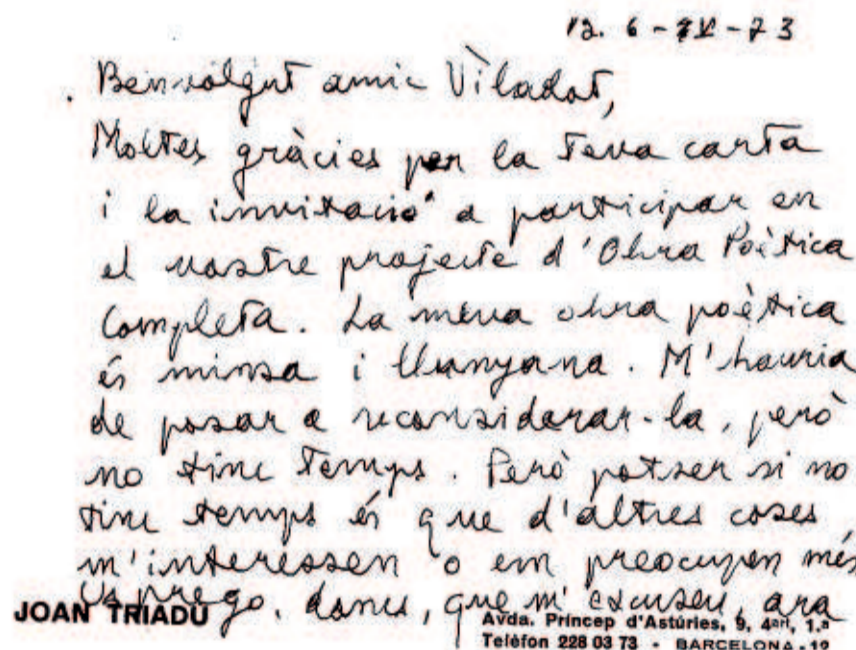 B. 6-IV-73
Benvolgut amic Viladot,
Moltes gràcies per la teva carta
i la invitació a participar en
el vostre projecte d'Obra Poètica
Completa. La meva obra poètica
és minsa i llunyana. M'hauria
de posar a reconsiderar-la, però
no tinc temps. Però potser si no
tinc temps és que d'altres coses
m'interessen o em preocupen més
Us prego, doncs, que m'excuseu, ara
JOAN TRIADÚ
Avda. Príncep d'Astúries, 9, 4art, 1.ª
Telèfon 228 03 73 - BARCELONA - 12